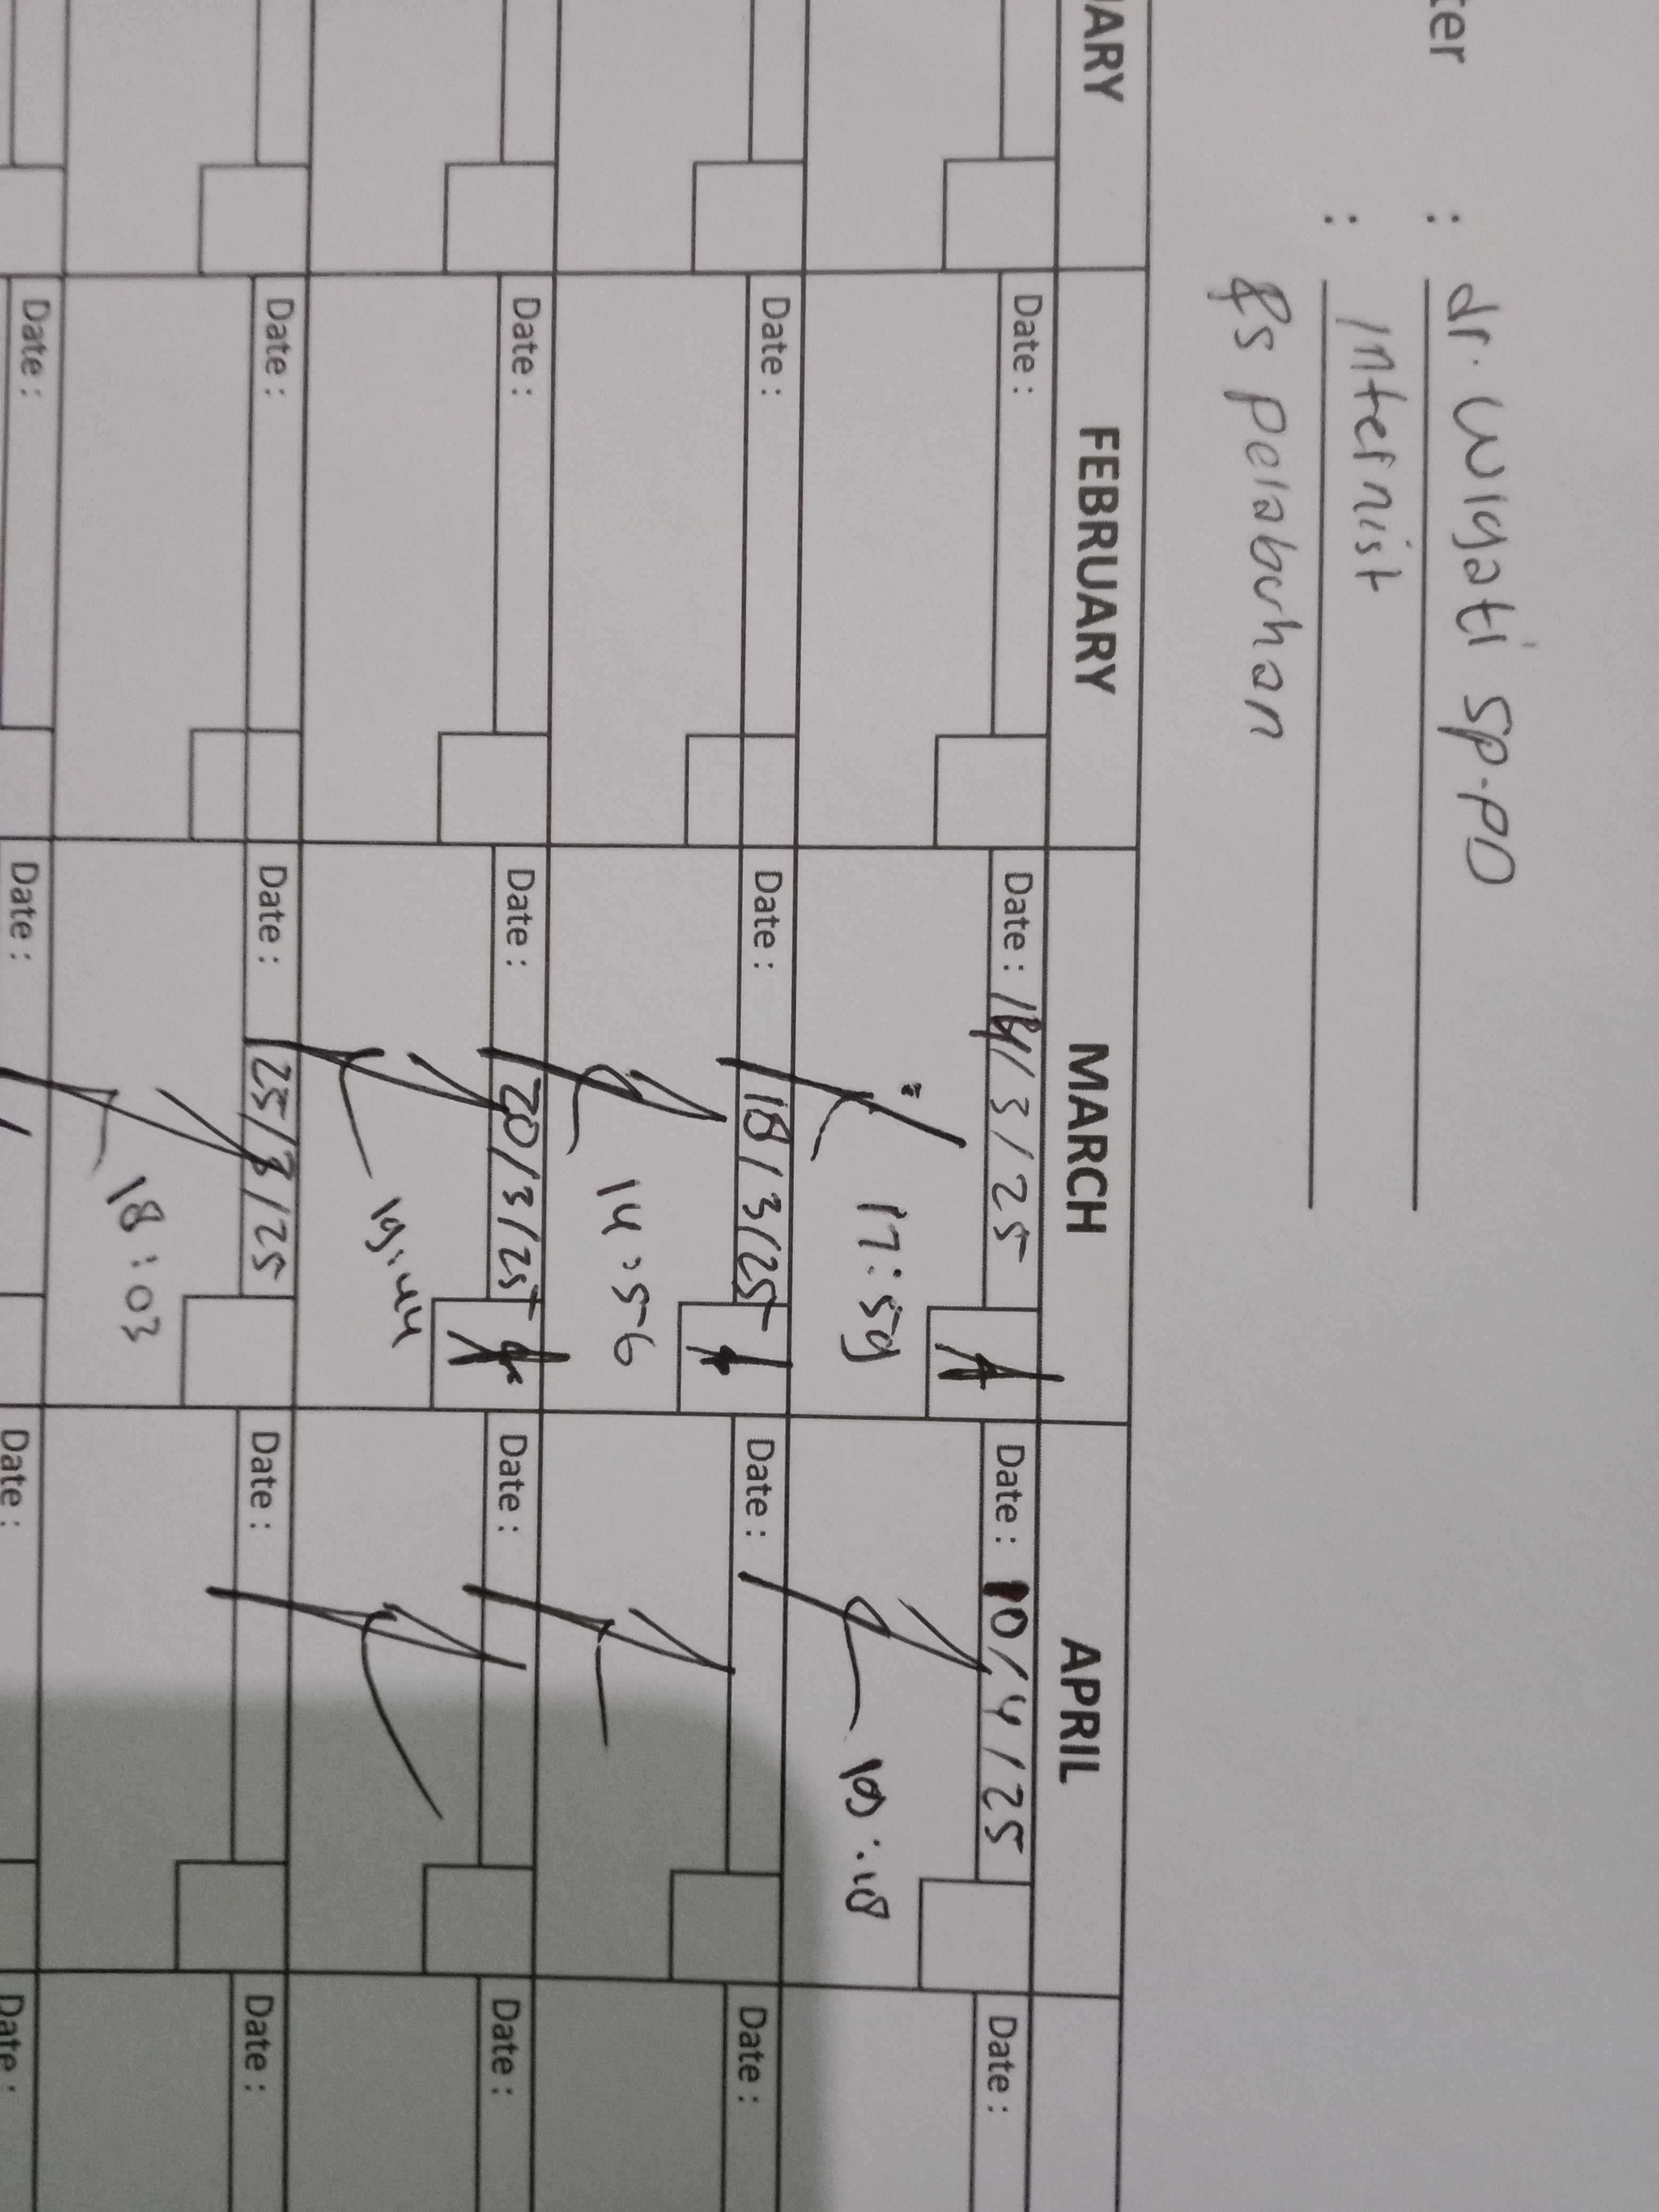 ter : dr. Wigati Sp.PD
: Internist
Rs pelabuhan
ARY FEBRUARY MARCH APRIL
Date : Date : 14/3/25 Date : 10/4/25 Date :
17:59 19:18
Date : Date : 18/3/25 Date : Date :
14:56
Date : Date : 20/3/25 Date : Date :
19:44
Date : Date : 25/3/25 Date : Date :
18:03
Date : Date : Date : Date :